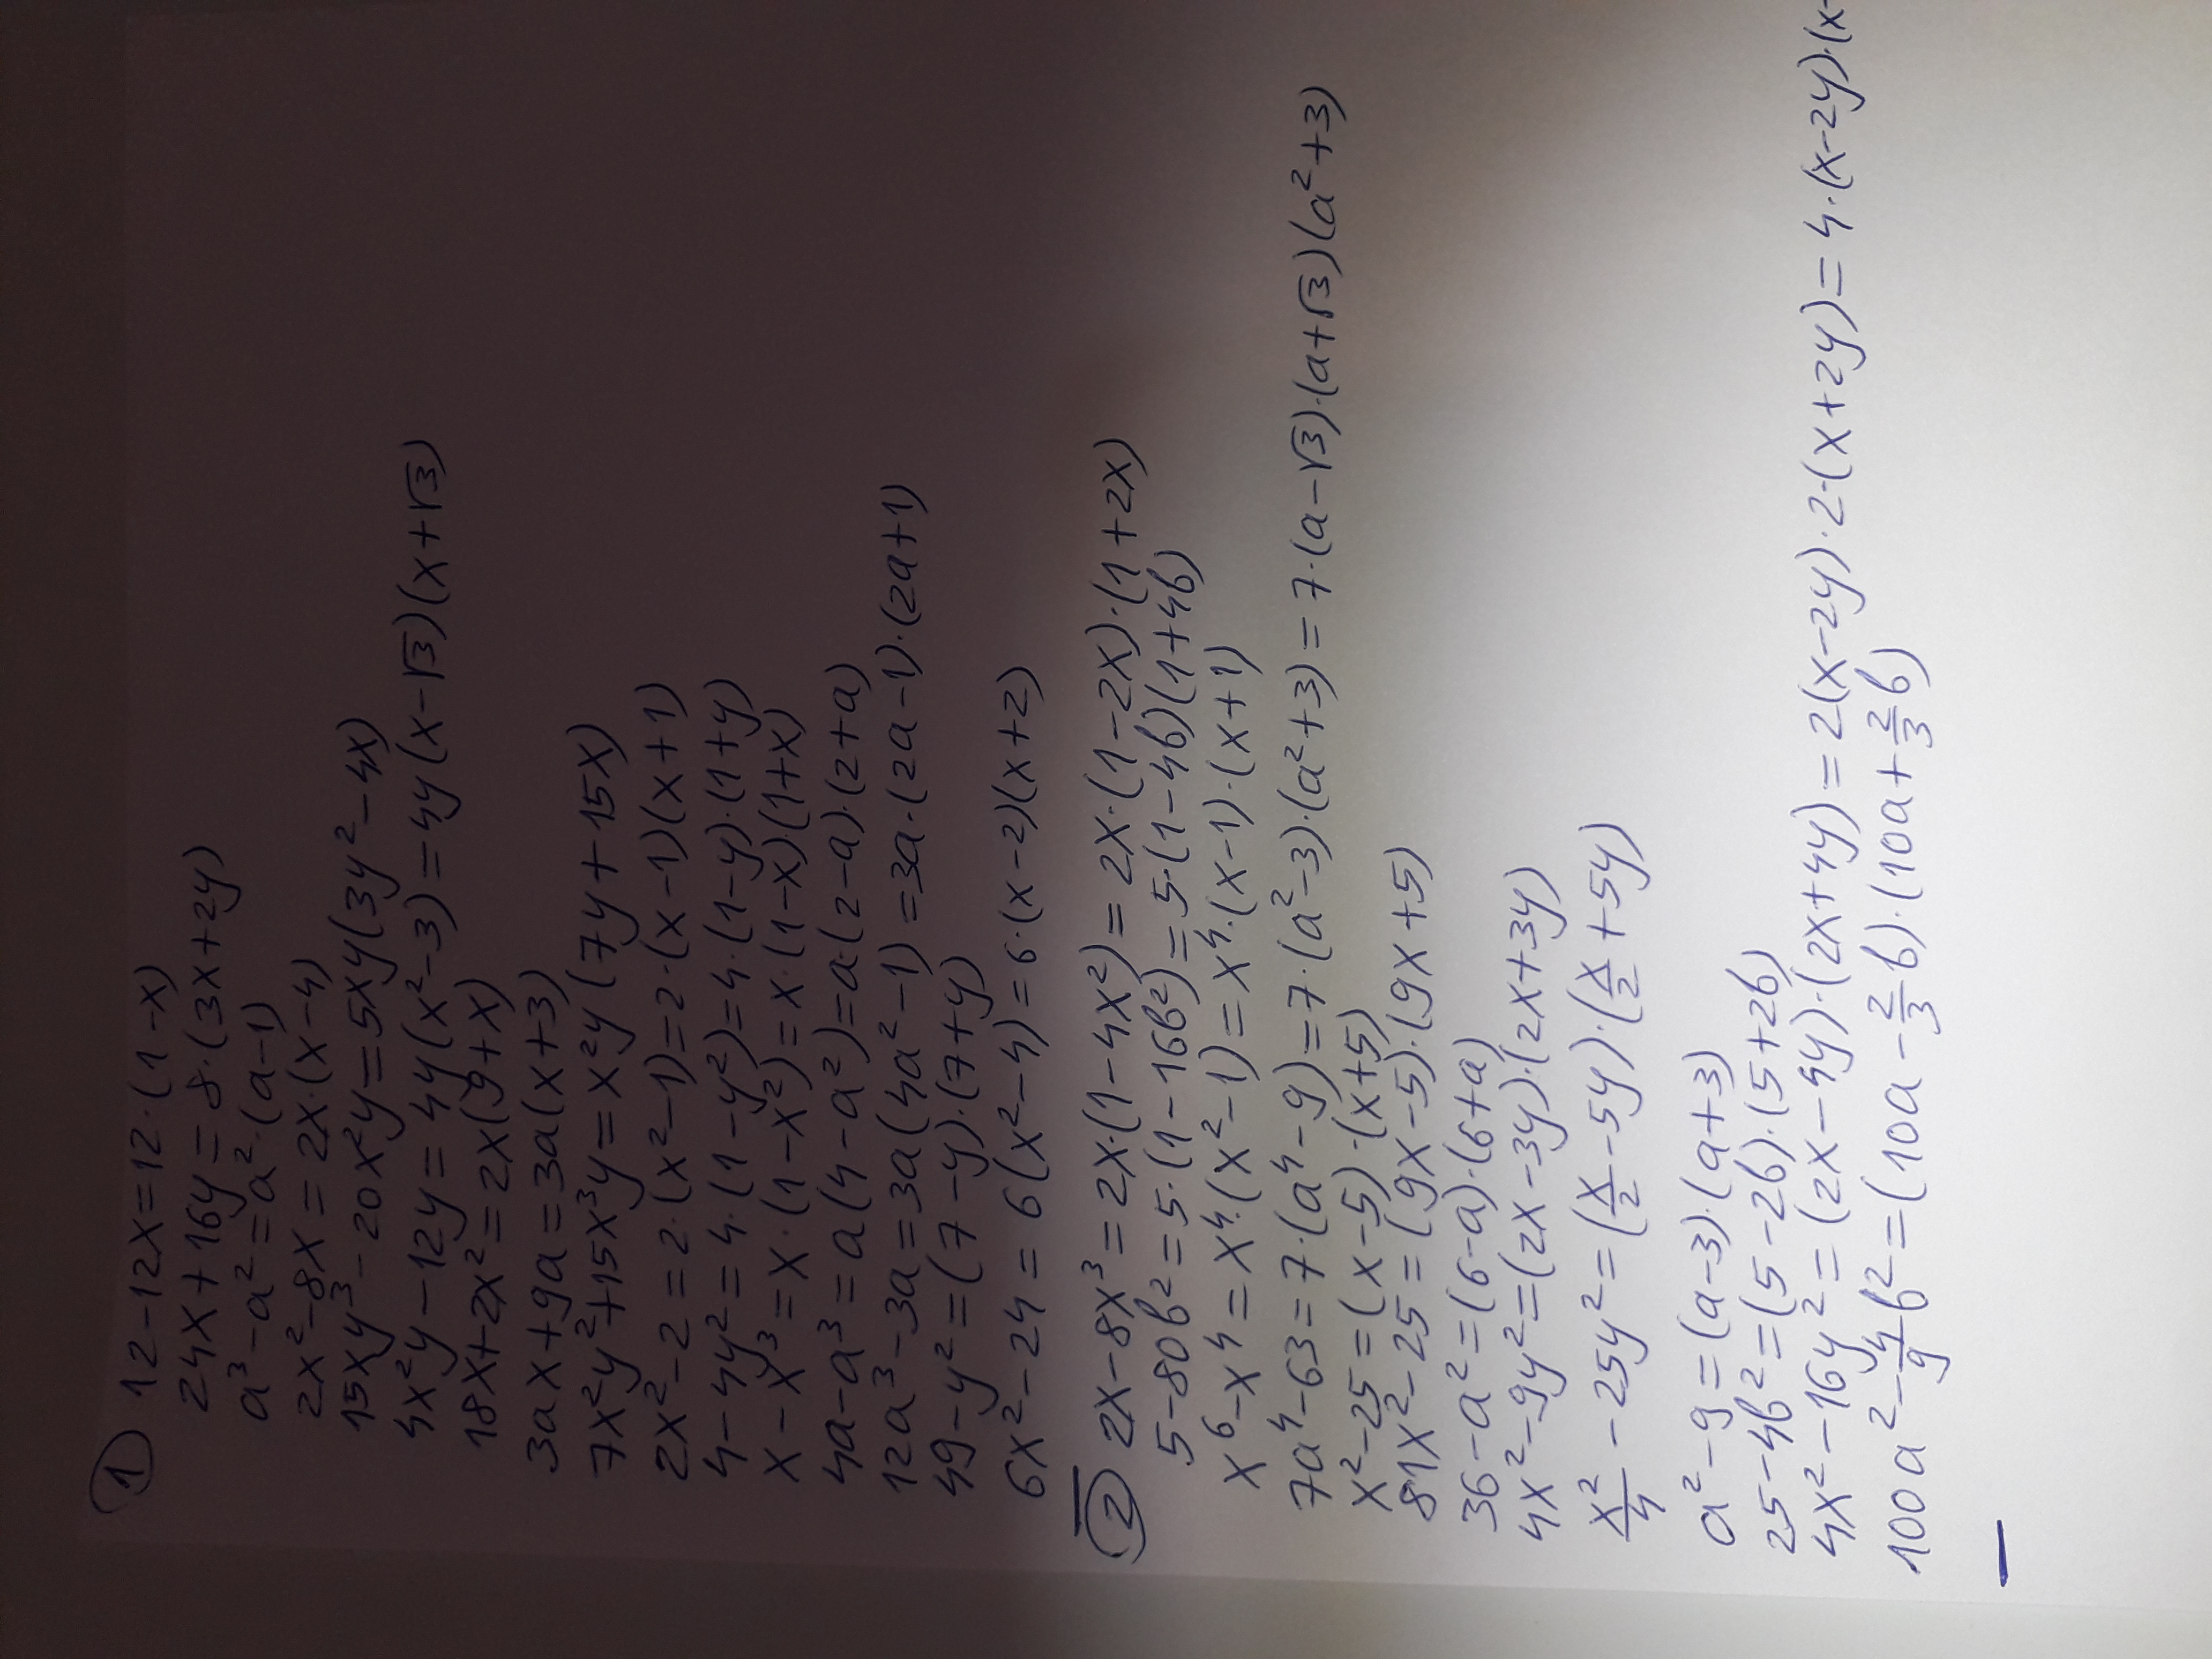 ① 12-12x=12·(1-x)
24x+16y=8·(3x+2y)
a³-a²=a²·(a-1)
2x²-8x=2x·(x-4)
15xy³-20x²y=5xy(3y²-4x)
4x²y-12y=4y(x²-3)=4y(x-√3)(x+√3)
18x+2x²=2x(9+x)
3ax+9a=3a(x+3)
7x²y²+15x³y=x²y(7y+15x)
2x²-2=2·(x²-1)=2·(x-1)(x+1)
4-4y²=4·(1-y²)=4·(1-y)·(1+y)
x-x³=x·(1-x²)=x·(1-x)(1+x)
4a-a³=a(4-a²)=a·(2-a)·(2+a)
12a³-3a=3a(4a²-1)=3a·(2a-1)·(2a+1)
49-y²=(7-y)·(7+y)
6x²-24=6(x²-4)=6·(x-2)(x+2)
② 2x-8x³=2x·(1-4x²)=2x·(1-2x)·(1+2x)
5-80b²=5·(1-16b²)=5·(1-4b)(1+4b)
x⁶-x⁴=x⁴·(x²-1)=x⁴·(x-1)·(x+1)
7a⁴-63=7·(a⁴-9)=7·(a²-3)·(a²+3)=7·(a-√3)·(a+√3)(a²+3)
x²-25=(x-5)·(x+5)
81x²-25=(9x-5)·(9x+5)
36-a²=(6-a)·(6+a)
4x²-9y²=(2x-3y)·(2x+3y)
x²/4-25y²=(x/2-5y)·(x/2+5y)
a²-9=(a-3)·(a+3)
25-4b²=(5-2b)·(5+2b)
4x²-16y²=(2x-4y)·(2x+4y)=2(x-2y)·2·(x+2y)=4·(x-2y)·(x-
100a²-4/9b²=(10a-2/3b)·(10a+2/3b)